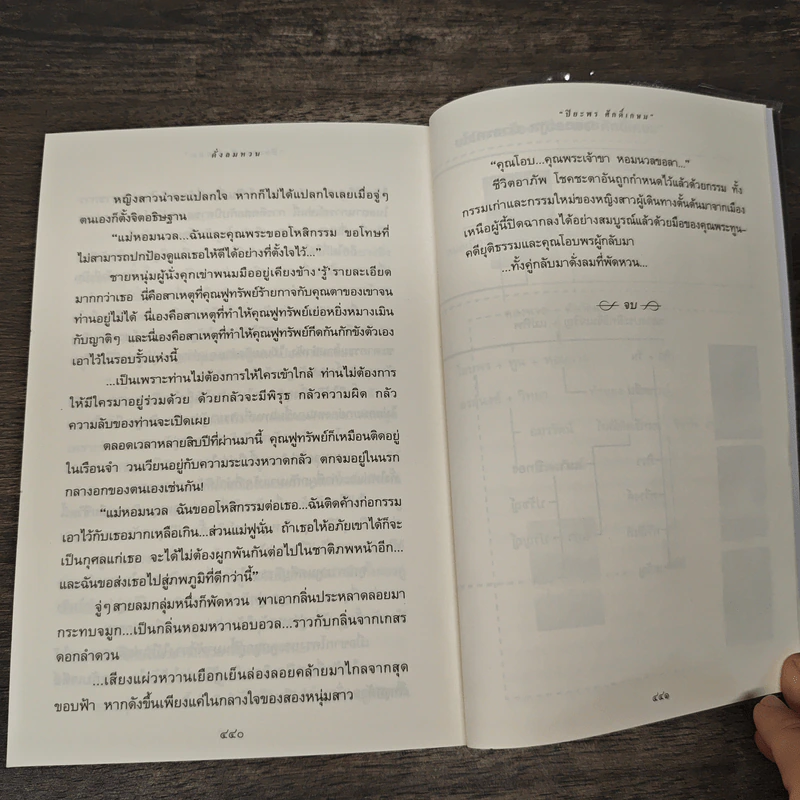 ดั่งลมหวน
หญิงสาวน่าจะแปลกใจ หากก็ไม่ได้แปลกใจเลยเมื่อจู่ๆ
ตนเองก็ตั้งจิตอธิษฐาน
“แม่หอมนวล...ฉันและคุณพระขออโหสิกรรม ขอโทษที่
ไม่สามารถปกป้องดูแลเธอให้ดีได้อย่างที่ตั้งใจไว้...”
ชายหนุ่มผู้นั่งคุกเข่าพนมมืออยู่เคียงข้าง ‘รู้’ รายละเอียด
มากกว่าเธอ นี่คือสาเหตุที่คุณฟูทรัพย์ร้ายกาจกับคุณตาของเขาจน
ท่านอยู่ไม่ได้ นี่เองคือสาเหตุที่ทำให้คุณฟูทรัพย์เย่อหยิ่งหมางเมิน
กับญาติๆ และนี่เองคือสาเหตุที่ทำให้คุณฟูทรัพย์กีดกันกักขังตัวเอง
เอาไว้ในรอบรั้วแห่งนี้
...เป็นเพราะท่านไม่ต้องการให้ใครเข้าใกล้ ท่านไม่ต้องการ
ให้มีใครมาอยู่ร่วมด้วย ด้วยกลัวจะมีพิรุธ กลัวความผิด กลัว
ความลับของท่านจะเปิดเผย
ตลอดเวลาหลายสิบปีที่ผ่านมานี้ คุณฟูทรัพย์ก็เหมือนติดอยู่
ในเรือนจำ วนเวียนอยู่กับความระแวงหวาดกลัว ตกจมอยู่ในนรก
กลางอกของตนเองเช่นกัน!
“แม่หอมนวล ฉันขออโหสิกรรมต่อเธอ...ฉันติดค้างก่อกรรม
เอาไว้กับเธอมากเหลือเกิน...ส่วนแม่ฟูนั่น ถ้าเธอให้อภัยเขาได้ก็จะ
เป็นกุศลแก่เธอ จะได้ไม่ต้องผูกพันกันต่อไปในชาติภพหน้าอีก...
และฉันขอส่งเธอไปสู่ภพภูมิที่ดีกว่านี้”
จู่ๆ สายลมกลุ่มหนึ่งก็พัดหวน พาเอากลิ่นประหลาดลอยมา
กระทบจมูก...เป็นกลิ่นหอมหวานอบอวล...ราวกับกลิ่นจากเกสร
ดอกลำดวน
...เสียงแผ่วหวานเยือกเย็นล่องลอยคล้ายมาไกลจากสุด
ขอบฟ้า หากดังขึ้นเพียงแค่ในกลางใจของสองหนุ่มสาว
๔๔๐
“ปิยะพร ศักดิ์เกษม”
“คุณโอบ...คุณพระเจ้าขา หอมนวลขอลา...”
ชีวิตอาภัพ โชคชะตาอันถูกกำหนดไว้แล้วด้วยกรรม ทั้ง
กรรมเก่าและกรรมใหม่ของหญิงสาวผู้เดินทางดั้นด้นมาจากเมือง
เหนือผู้นี้ปิดฉากลงได้อย่างสมบูรณ์แล้วด้วยมือของคุณพระทูน-
คดียุติธรรมและคุณโอบพรผู้กลับมา
...ทั้งคู่กลับมาดั่งลมที่พัดหวน...
จบ
๔๔๑